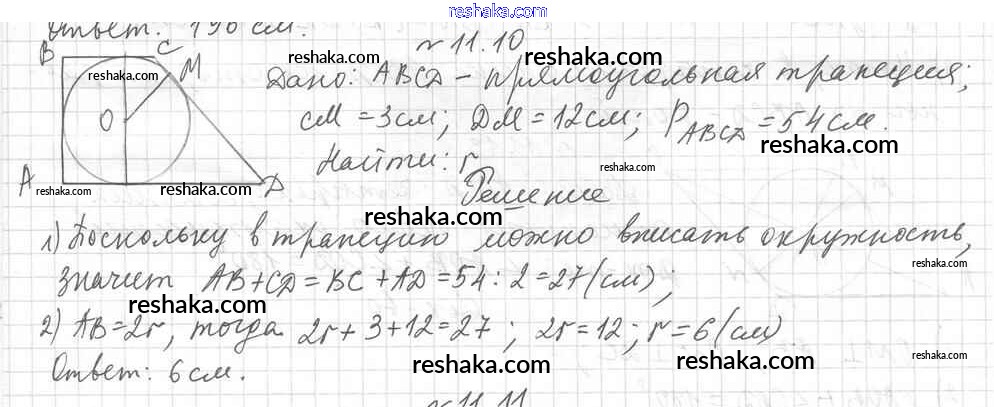 www.reshaka.com
Ответ: 196 см.
№11.10
B C M reshaka.com
O
A D
Дано: ABCD – прямоугольная трапеция;
reshaka.com
CM = 3 см; DM = 12 см; P ABCD = 54 см.
reshaka.com
Найти: r
reshaka.com
reshaka.com reshaka.com reshaka.com
Решение
reshaka.com
1) Поскольку в трапецию можно вписать окружность,
значит AB + CD = BC + AD = 54 : 2 = 27 (см);
reshaka.com reshaka.com reshaka.com
2) AB = 2r, тогда 2r + 3 + 12 = 27; 2r = 12; r = 6 (см)
Ответ: 6 см.
reshaka.com reshaka.com reshaka.com
№11.11